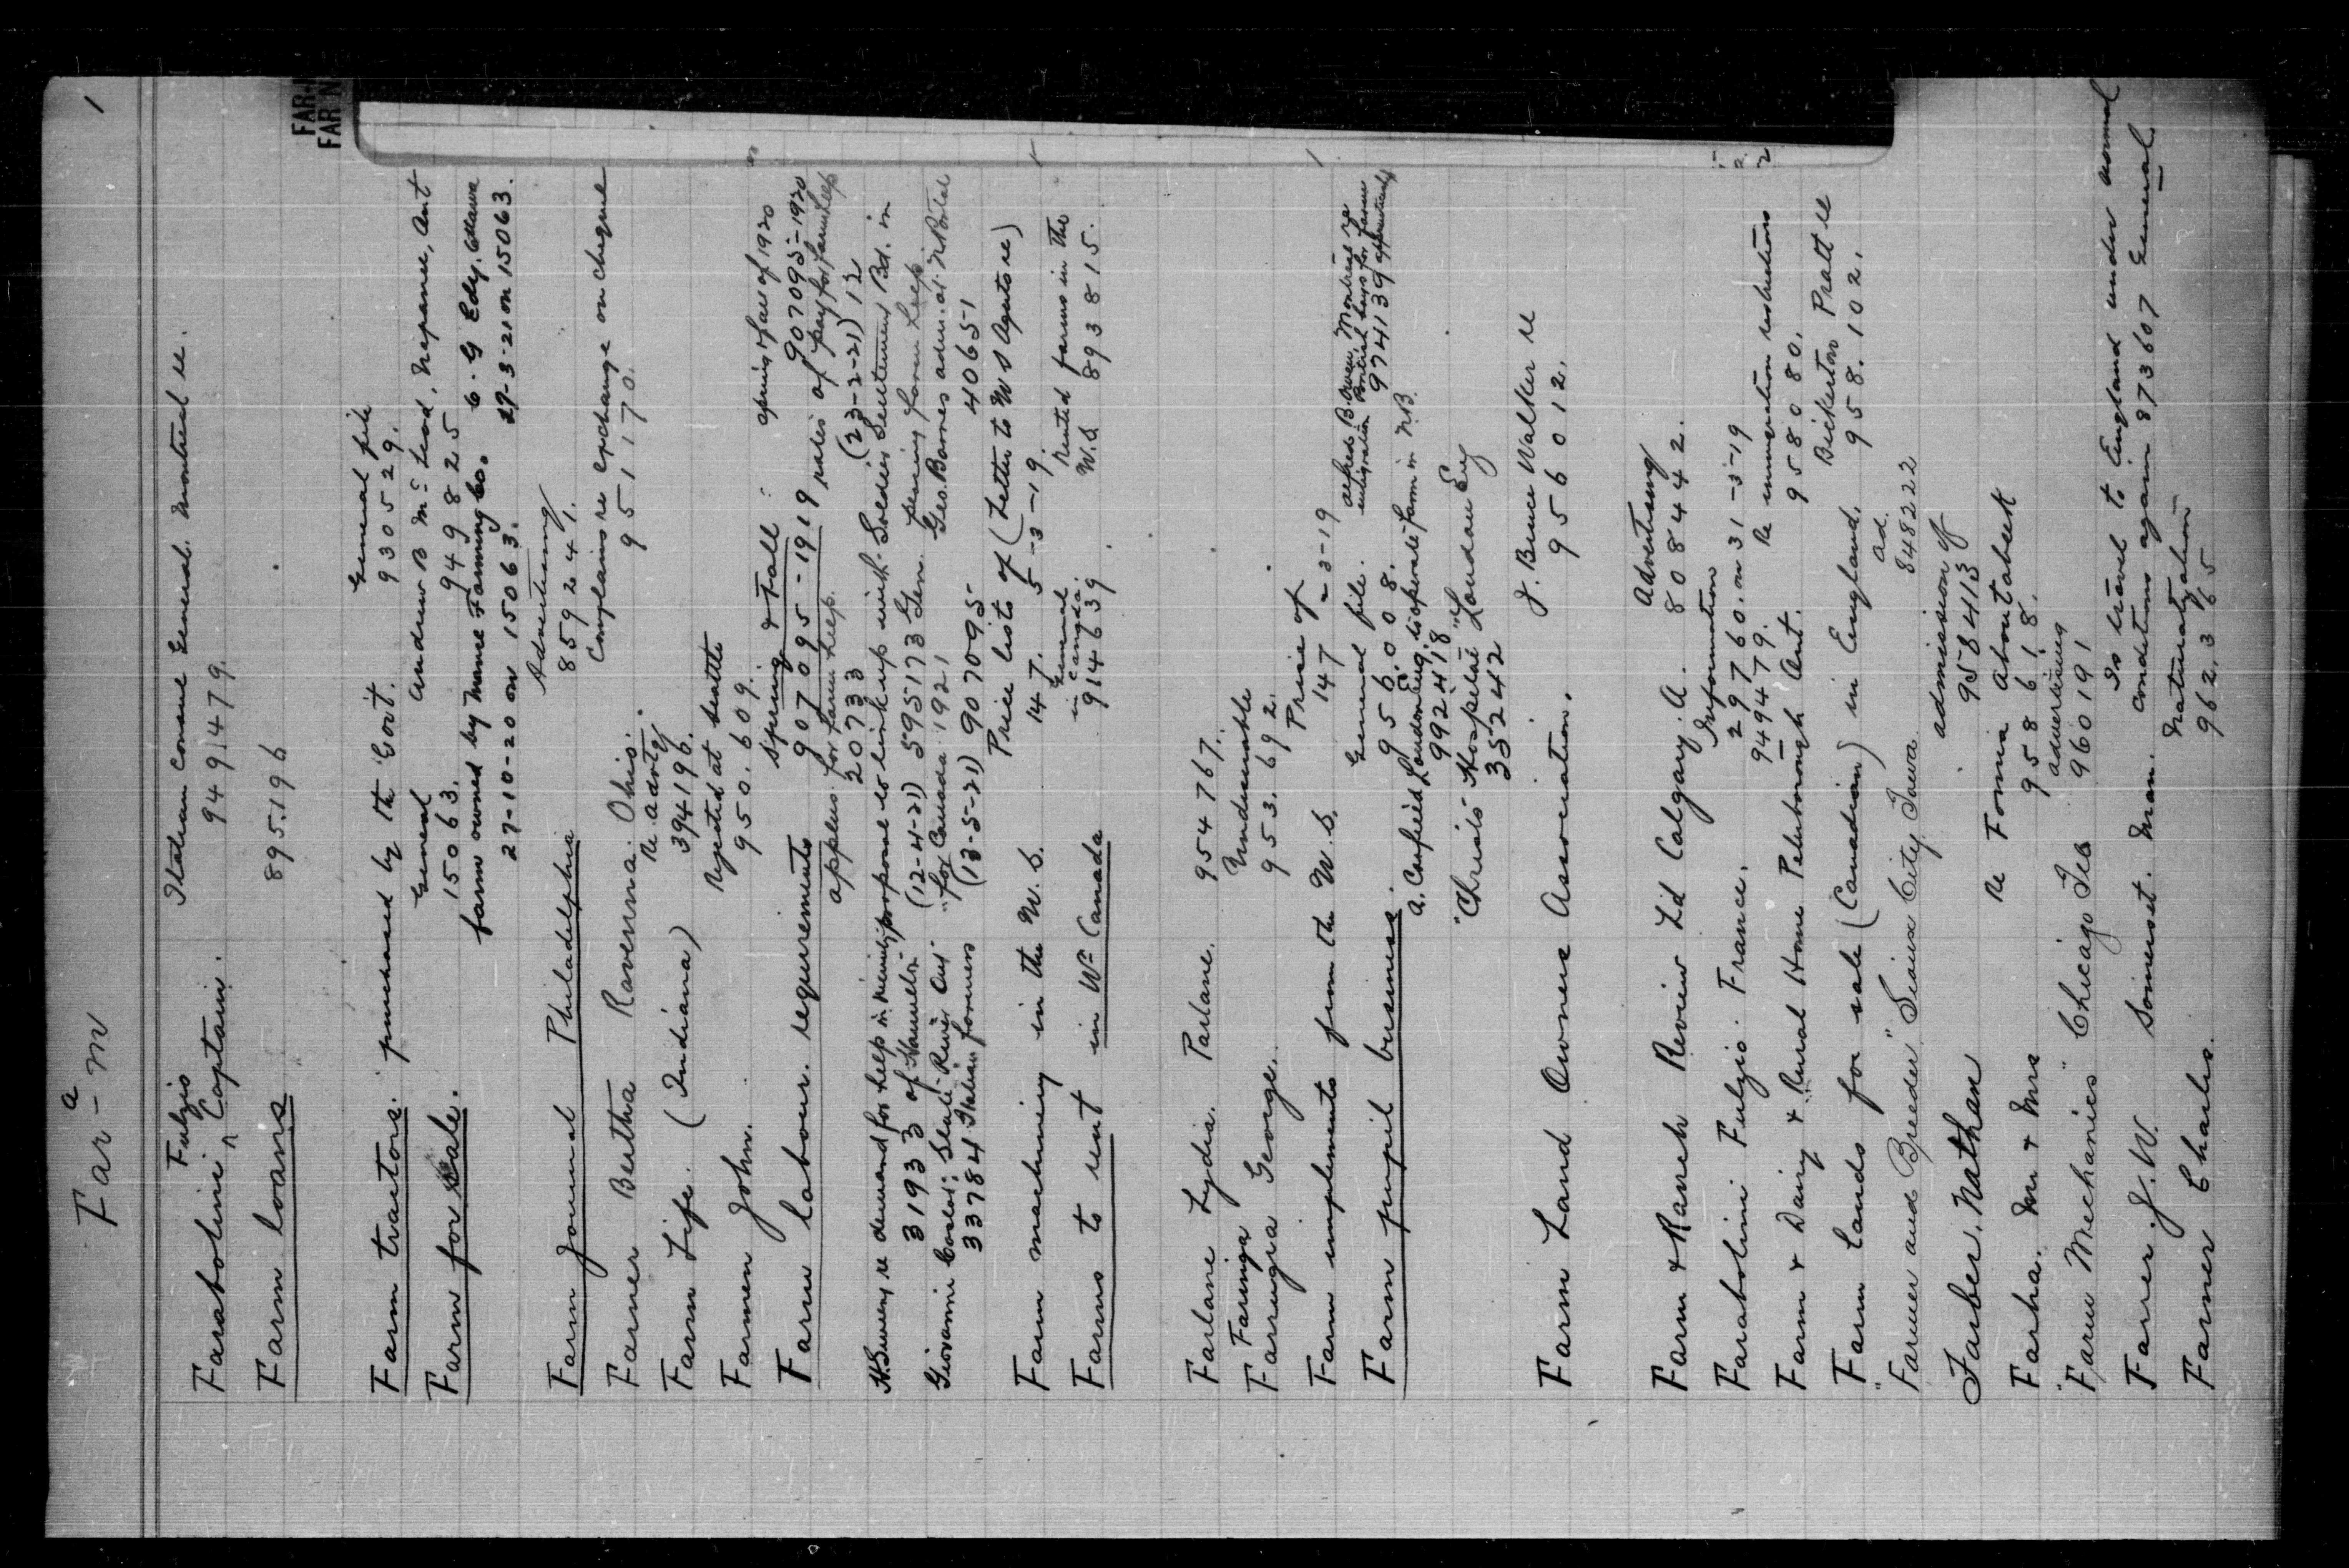 Far - m
a
1
FAR-
FAR N
Fulzio
Farabolini Captain. Italian Consul General. Montreal re.
949479.
Farm loans 895196
General file
Farm tractors. purchased by the Govt. 930529.
General Andrew B McLeod, Napanee, Ont
Farm for sale. 15063. 949825
farm owned by Manee Farming Co. C. G Edy. Ottawa
27-10-20 on 15063. 29-3-21 on 15063.
Advertising
Farm Journal Philadelphia 859241.
Complains re exchange on cheque
Farmer Bertha Ravenna. Ohio. 951170.
re advtg
Farm Life. (Indiana) 394196.
Rejected at Seattle
Farmen John. 950.609.
Spring & Fall spring & Fall of 1920
Farm labour. requirements 907095-1919 907095-1920
applens. for farm help. rates of pay for farm help
20733 (23-2-21) 12
re demand for help in proposal to link up with Soldiers Settlement Bd. in
31933 of Hamelton (12-4-21) 595173 Gen. farm help
Giovanni Slate River Ont "for Canada 1921 Geo. Barnes adm. at N Portal
33784 Italian farmers (13-5-21) 907095 40651
Price lists of (Letter to W S Agents re)
Farm machinery in the U.S. 147. 5-3-19.
General
in Canada. Rented farms in the
Farms to rent in Wn Canada 914639 U.S. 893815.
Farlane Lydia. Parlane. 954767.
Faringia Undesirable
Farrugia George. 953.692.
Price of
Farm implements from the U.S. 147 -3-19
General file. Alfred B. Owen, Montreal re
emigration British boys for farm
Farm pupil business. 956.008. 974139 apprentices
A. Canfield London Eng. to operate farm in N.B.
992418
"Christ's Hospital" London Eng
35242
J. Bruce Walker re
Farm Land Owners Association. 956012.
Advertising
Farm & Ranch Review Ltd Calgary. A. 808442.
Information
Farabolini Fulzio. France. 29760. on 31-3-19
949479. Re immigration restrictions
Farm & Dairy & Rural Home Peterborough Ont. 958080.
Bickerton Pratt re
Farm lands for sale (Canadian) in England. 958.102.
ad.
"Farmer and Breeder" Sioux City Iowa 848222
admission of
Farber. Nathan 958413
re Tomia Aboutabeek
Farha. Mr & Mrs 958618.
advertising
"Farm Mechanics" Chicago Ill 960191
Is travel to England under normal
Farrer. J. W. Somerset. Man. conditions again 873607 General
Naturalization
Farmer Charles. 962.365